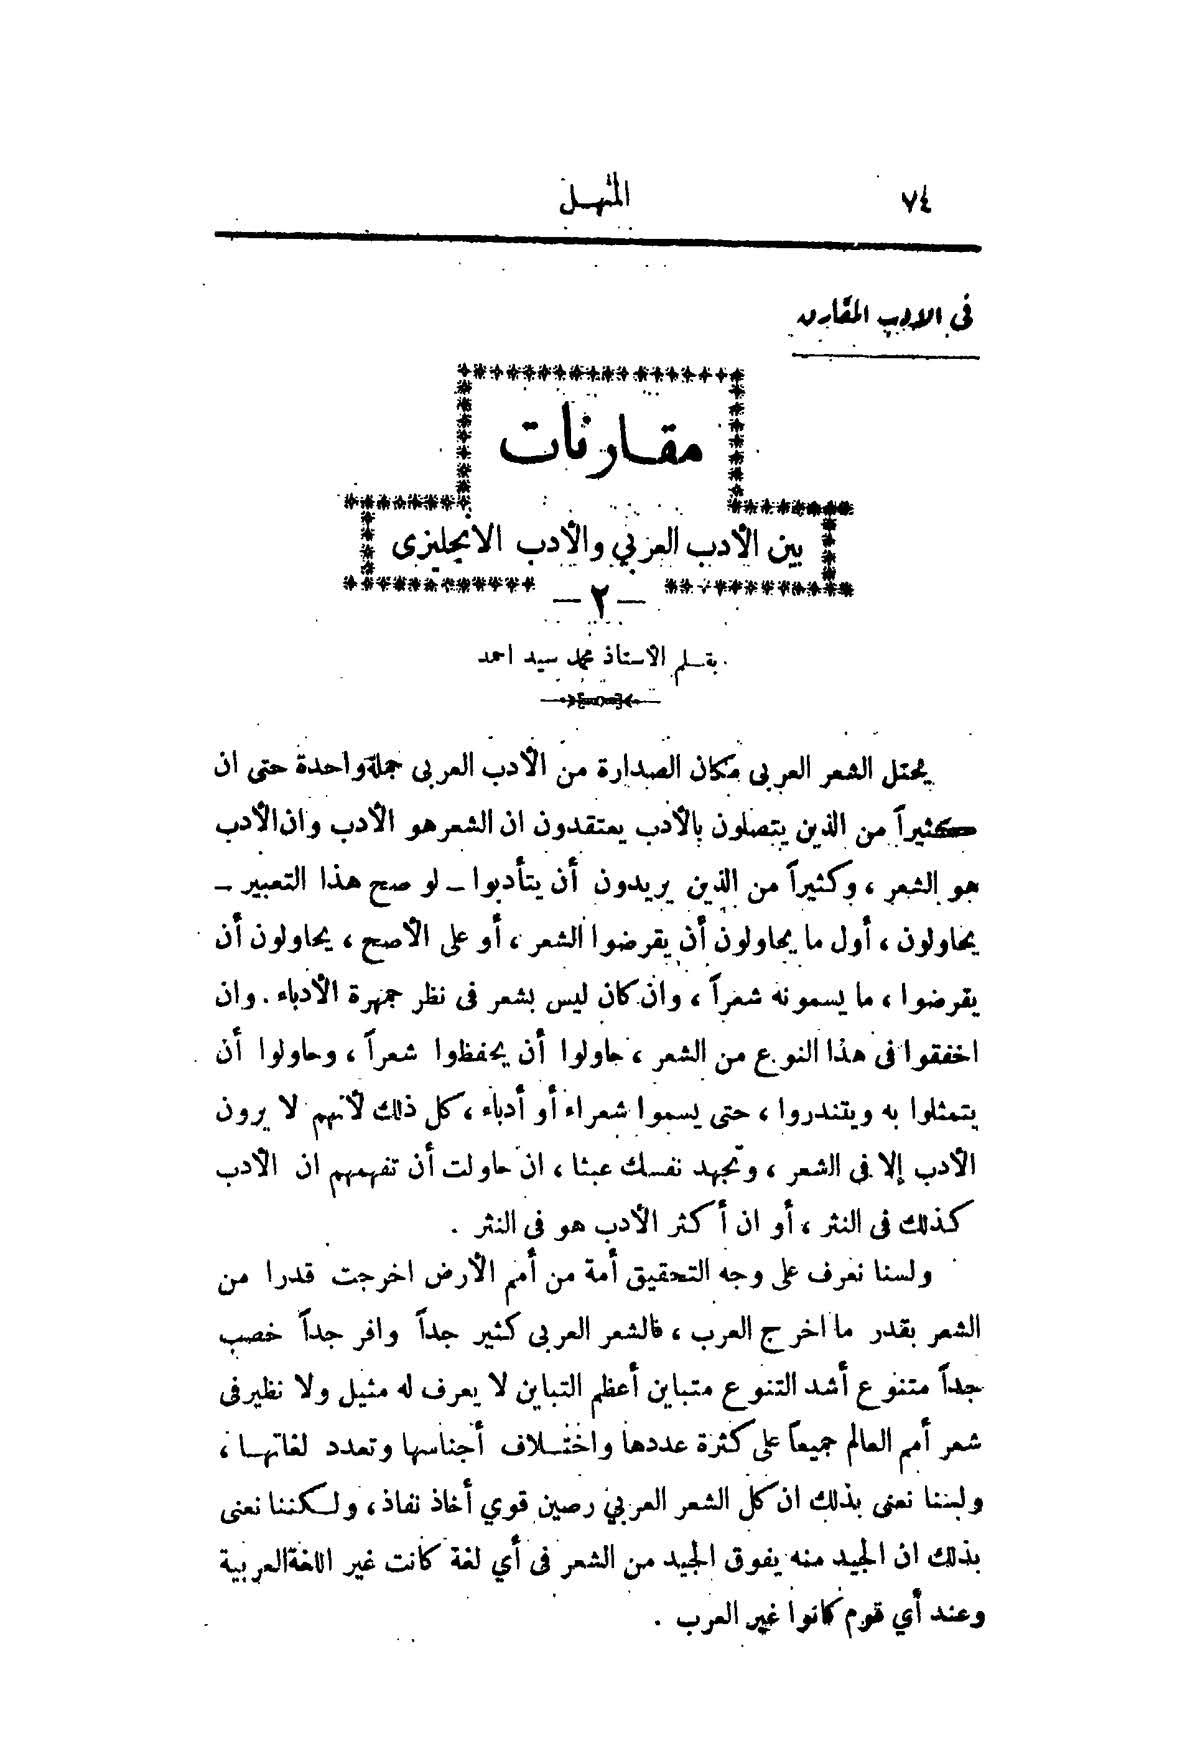 ٧٤
المنهل
في الادب المقارن
مقارنات
بين الأدب العربي والأدب الانجليزى
— ٢ —
بقلم الاستاذ محمد سيد احمد
يحتل الشعر العربى مكان الصدارة من الأدب العربى جملة واحدة حتى ان
كثيراً من الذين يتصلون بالأدب يعتقدون ان الشعر هو الأدب وان الأدب
هو الشعر ، وكثيراً من الذين يريدون أن يتأدبوا ــ لو صح هذا التعبير ــ
يحاولون ، أول ما يحاولون أن يقرضوا الشعر ، أو على الأصح ، يحاولون أن
يقرضوا ، ما يسمونه شعراً ، وان كان ليس بشعر فى نظر جمهرة الأدباء . وان
اخفقوا فى هذا النوع من الشعر ، حاولوا أن يحفظوا شعراً ، وحاولوا أن
يتمثلوا به ويتندروا ، حتى يسموا شعراء أو أدباء ، كل ذلك لأنهم لا يرون
الأدب إلا فى الشعر ، وتجهد نفسك عبثا ، ان حاولت أن تفهمهم ان الأدب
كذلك فى النثر ، أو ان أكثر الأدب هو فى النثر .
ولسنا نعرف على وجه التحقيق أمة من أمم الأرض اخرجت قدرا من
الشعر بقدر ما اخرج العرب ، فالشعر العربى كثير جداً وافر جداً خصب
جداً متنوع أشد التنوع متباين أعظم التباين لا يعرف له مثيل ولا نظير فى
شعر أمم العالم جميعاً على كثرة عددها واختلاف أجناسها وتعدد لغاتها ،
ولسنا نعنى بذلك ان كل الشعر العربي رصين قوي أخاذ نفاذ ، ولكننا نعنى
بذلك ان الجيد منه يفوق الجيد من الشعر فى أي لغة كانت غير اللغة العربية
وعند أي قوم كانوا غير العرب .